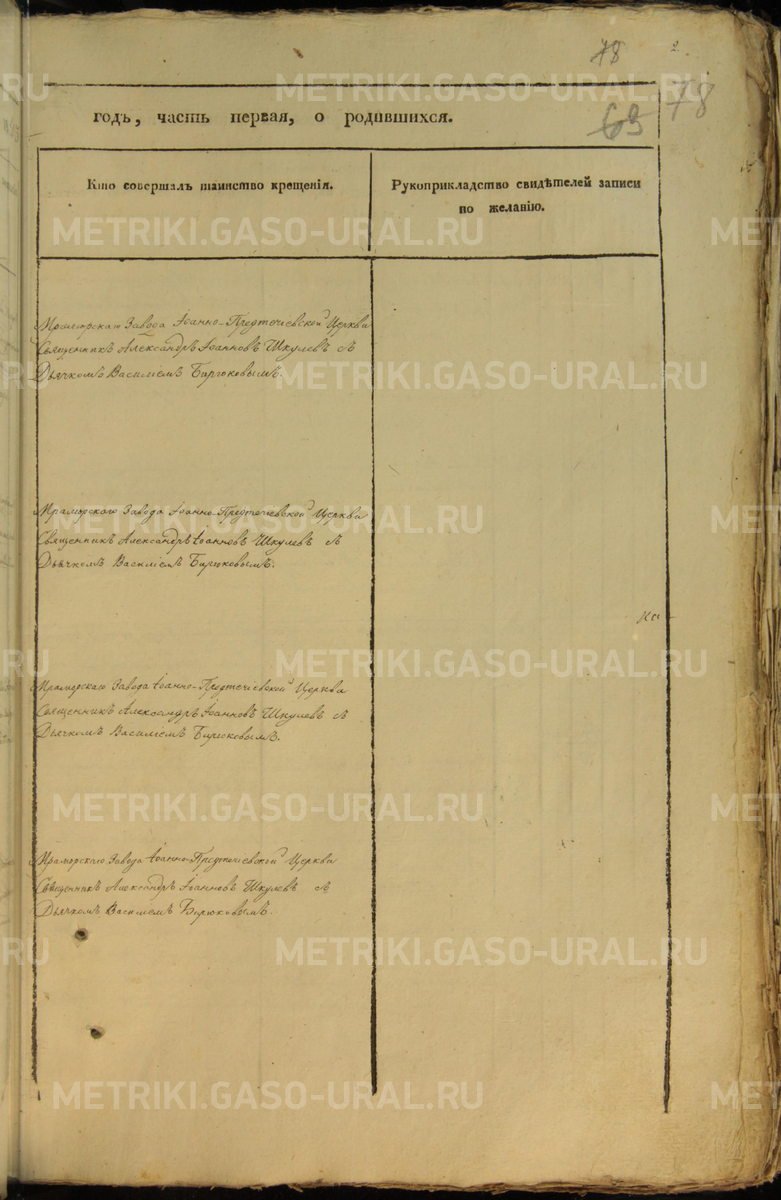 78
2.
78
63
годъ, часть первая, о родившихся.
Кто совершалъ таинство крещенія.
Рукоприкладство свидѣтелей записи
по желанію.
Мраморскаго Завода Іоанно-Предтечіевской Церкви
Священникъ Александръ Іоанновъ Шкулевъ съ
Дьячкомъ Василіемъ Бирюковымъ.
Мраморскаго Завода Іоанно-Предтечіевской Церкви
Священникъ Александръ Іоанновъ Шкулевъ съ
Дьячкомъ Василіемъ Бирюковымъ.
Мраморскаго Завода Іоанно-Предтечіевской Церкви
Священникъ Александръ Іоанновъ Шкулевъ съ
Дьячкомъ Василіемъ Бирюковымъ.
Мраморскаго Завода Іоанно-Предтечіевской Церкви
Священникъ Александръ Іоанновъ Шкулевъ съ
Дьячкомъ Василіемъ Бирюковымъ.
METRIKI.GASO-URAL.RU
METRIKI.GASO-URAL.RU
METRIKI.GASO-URAL.RU
METRIKI.GASO-URAL.RU
METRIKI.GASO-URAL.RU
METRIKI.GASO-URAL.RU
METRIKI.GASO-URAL.RU
METRIKI.GASO-URAL.RU